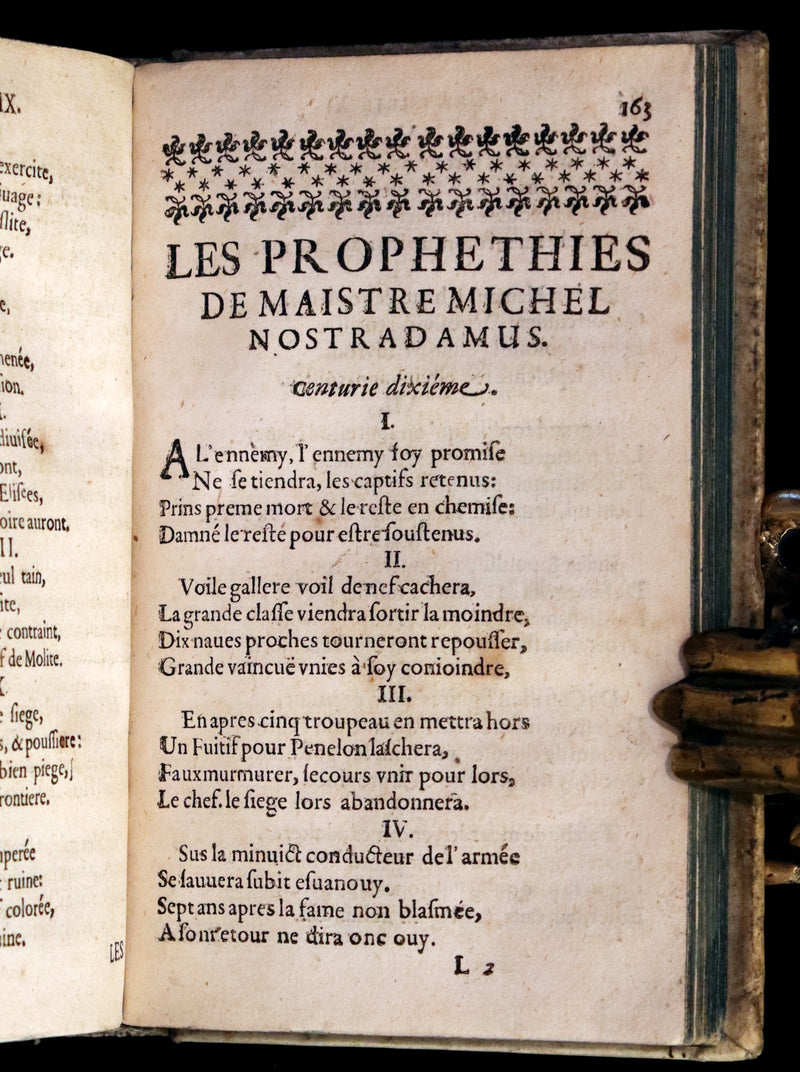 IX.
exercite,
uage:
flite,
e.
e,
nenée,
ion.
I.
diuisée,
ont,
Elisées,
oire auront.
II.
cul tain,
ite,
contraint,
f de Molite.
X
siege,
s, & poussiere:
bien piege,
rontiere.
mperée
ruine:
colorée,
uine.
LES
163
LES PROPHETHIES
DE MAISTRE MICHEL
NOSTRADAMUS.
Centurie dixiéme.
I.
A L'ennemy, l'ennemy ſoy promiſe
Ne ſe tiendra, les captifs retenus:
Prins preme mort & le reſte en chemiſe:
Damné le reſte pour eſtre ſouſtenus.
II.
Voile gallere voil de nef cachera,
La grande claſſe viendra ſortir la moindre,
Dix naues proches tourneront repouſſer,
Grande vaincuë vnies à ſoy conioindre,
III.
En apres cinq troupeau en mettra hors
Un Fuitif pour Penelon laſchera,
Faux murmurer, ſecours vnir pour lors,
Le chef. le ſiege lors abandonnera.
IV.
Sus la minuict conducteur de l'armée
Se ſauuera ſubit eſuanouy.
Sept ans apres la fame non blaſmée,
A ſon retour ne dira onc ouy.
L 2